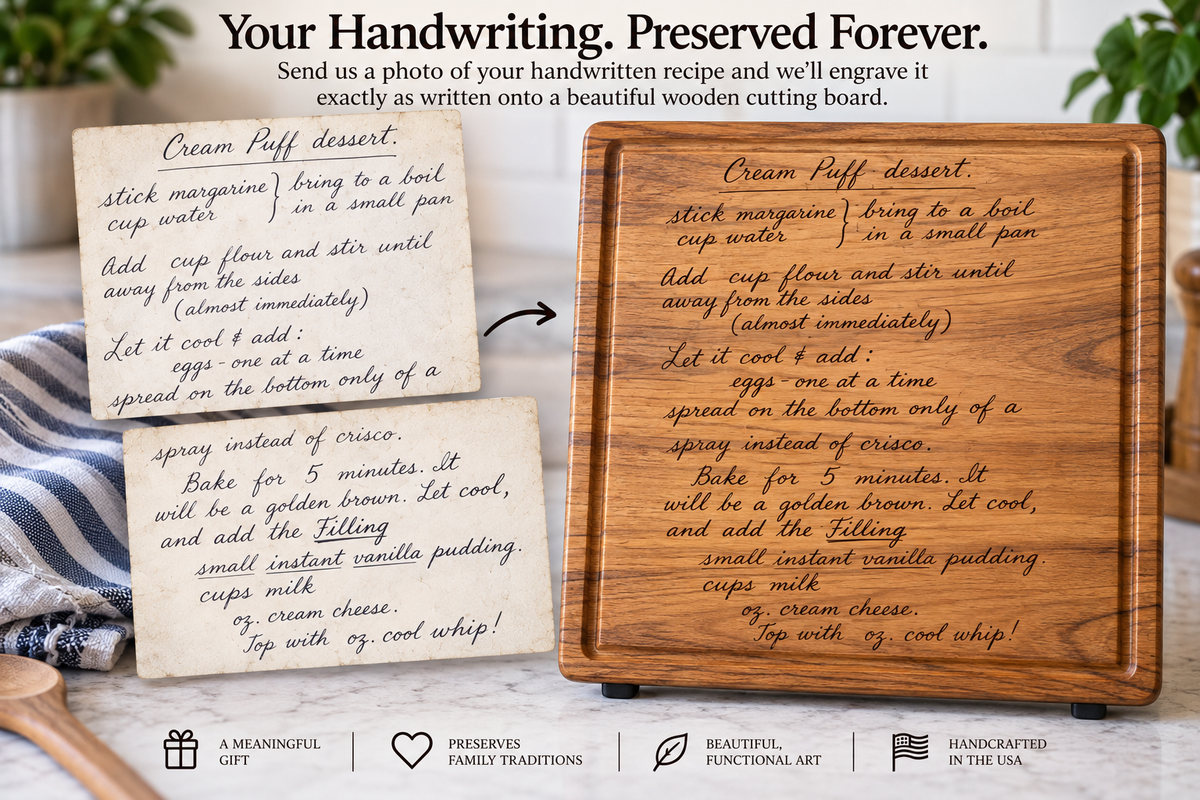 Your Handwriting. Preserved Forever.
Send us a photo of your handwritten recipe and we'll engrave it
exactly as written onto a beautiful wooden cutting board.
Cream Puff dessert.
stick margarine } bring to a boil
cup water } in a small pan
Add cup flour and stir until
away from the sides
(almost immediately)
Let it cool & add:
eggs - one at a time
spread on the bottom only of a
spray instead of crisco.
Bake for 5 minutes. It
will be a golden brown. Let cool,
and add the Filling
small instant vanilla pudding.
cups milk
oz. cream cheese.
Top with oz. cool whip!
Cream Puff dessert.
stick margarine } bring to a boil
cup water } in a small pan
Add cup flour and stir until
away from the sides
(almost immediately)
Let it cool & add:
eggs - one at a time
spread on the bottom only of a
spray instead of crisco.
Bake for 5 minutes. It
will be a golden brown. Let cool,
and add the Filling
small instant vanilla pudding.
cups milk
oz. cream cheese.
Top with oz. cool whip!
A MEANINGFUL
GIFT
PRESERVES
FAMILY TRADITIONS
BEAUTIFUL,
FUNCTIONAL ART
HANDCRAFTED
IN THE USA